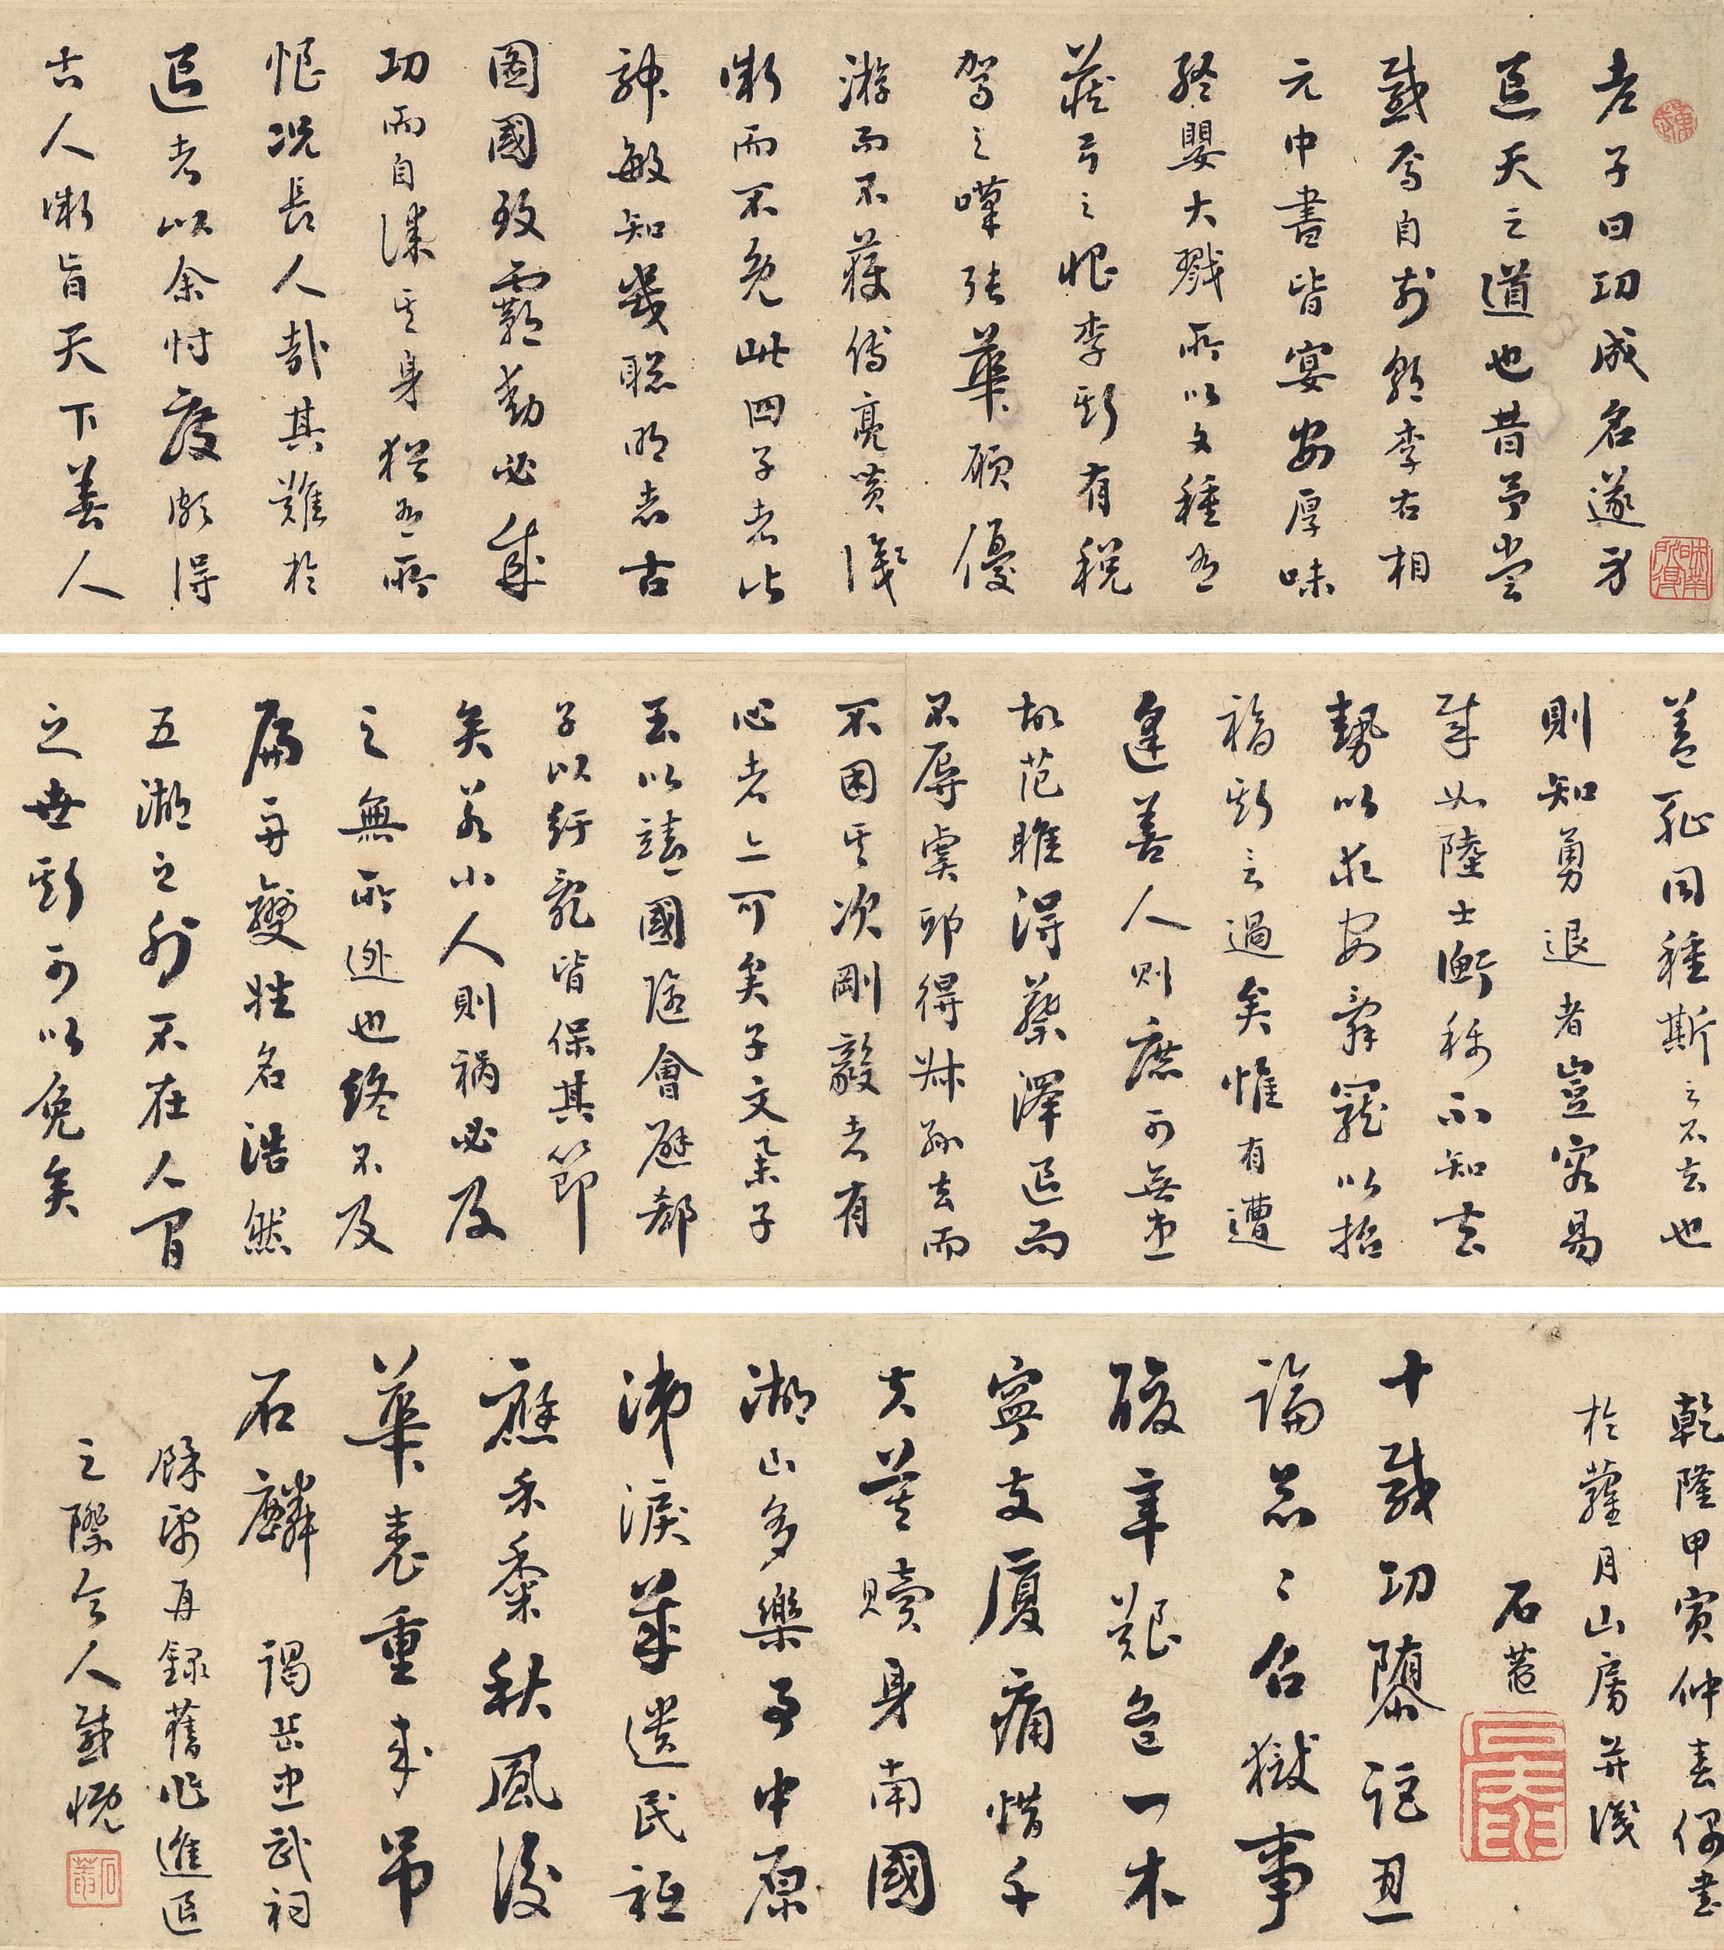 老子曰功成名遂身
退天之道也昔予嘗
感焉自前朝李右相
元中書皆宴安厚味
終嬰大戮所以文種有
藏弓之恨李斯有稅
駕之嘆張華願優
游而不獲傅亮贊識
微而不免此四子者皆
神敏知幾聰明志古
圖國致霸動必成
功而自謀其身猶有所
恨況長人哉其難於
退者以余忖度頗得
古人微旨天下善人
蓋孤同種斯之不去也
則知勇退者豈容易
哉如陸士衡稱不知去
勢以求安辭寵以招
福斯言過矣惟有遭
逢善人則庶可無患
故范睢得蔡澤退而
不辱虞卬得叔孫去而
不困其次剛毅者有
心者亦可矣子文柔子
玉以靖國隨會避郤
子以紓亂皆保其節
矣若小人則禍必及
之無所逃也終不及
扁舟變姓名浩然
五湖之外不在人間
之世斯可以免矣
乾隆甲寅仲春偶書
於蘿月山房并識
石菴
十載功隳詎丑
論忽忽召獄事
酸辛艱危一木
寧支廈痛惜千
夫莫贖身南國
湖山多樂事中原
涕淚革遺民祗
應禾黍秋風後
華表重來弔
石麟 謁岳忠武祠
餘紙再錄舊作進退
之際令人感慨